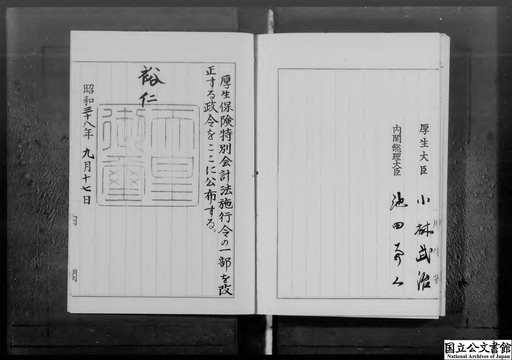 厚生大臣 小林武治
内閣総理大臣 池田勇人
厚生保険特別会計法施行令の一部を改
正する政令をここに公布する。
裕仁
天皇
御璽
昭和三十八年 九月十七日
国立公文書館
National Archives of Japan